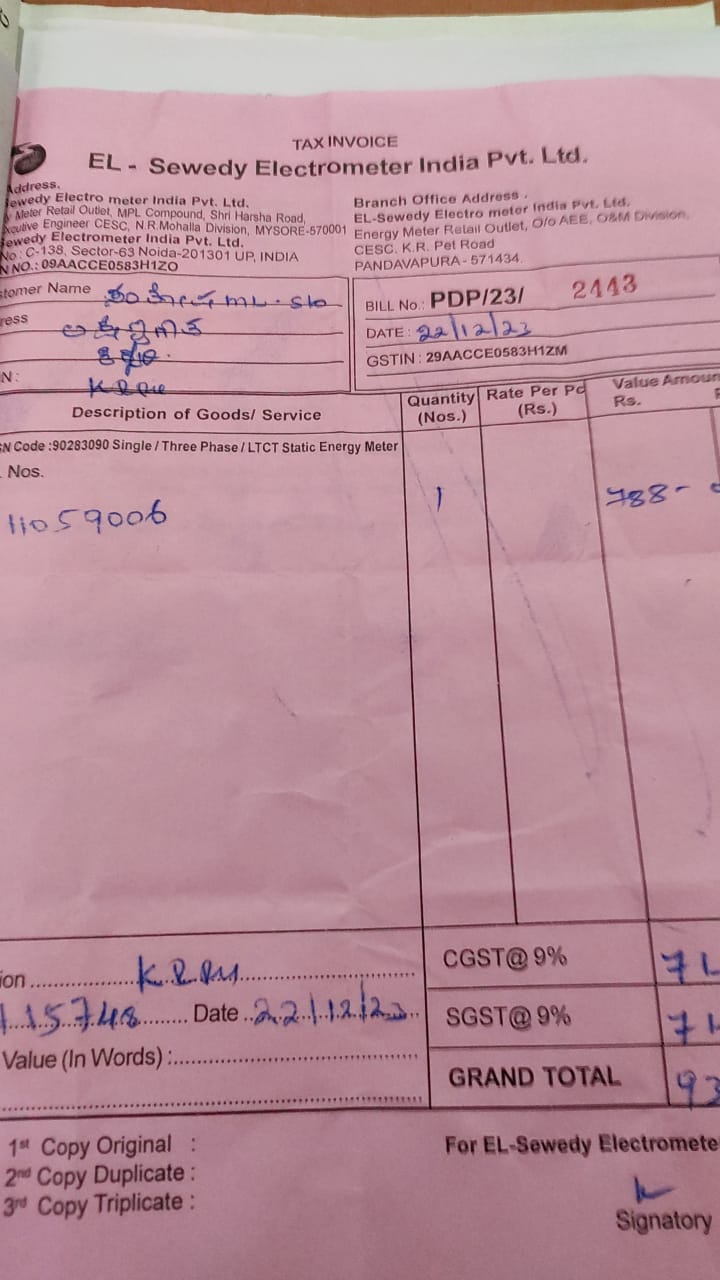 TAX INVOICE
EL - Sewedy Electrometer India Pvt. Ltd.
Address.
ewedy Electro meter India Pvt. Ltd.
Meter Retail Outlet, MPL Compound, Shri Harsha Road,
xcutive Engineer CESC, N.R.Mohalla Division, MYSORE-570001
ewedy Electrometer India Pvt. Ltd.
No : C-138, Sector-63 Noida-201301 UP, INDIA
N NO.: 09AACCE0583H1ZO
Branch Office Address .
EL-Sewedy Electro meter India Pvt. Ltd.
Energy Meter Retail Outlet, O/o AEE, O&M Division,
CESC. K.R. Pet Road
PANDAVAPURA - 571434.
stomer Name
ress
N :
BILL No.: PDP/23/ 2443
DATE : 22/12/23
GSTIN : 29AACCE0583H1ZM
Description of Goods/ Service
Quantity (Nos.)
Rate Per Pc (Rs.)
Value Amoun
Rs.
SN Code :90283090 Single / Three Phase / LTCT Static Energy Meter
. Nos.
11059006 1 788-
ion ..................
CGST@ 9% 71
115748 Date 22/12/23
SGST@ 9% 71
Value (In Words) :
GRAND TOTAL 93
1st Copy Original :
2nd Copy Duplicate :
3rd Copy Triplicate :
For EL-Sewedy Electromete
Signatory